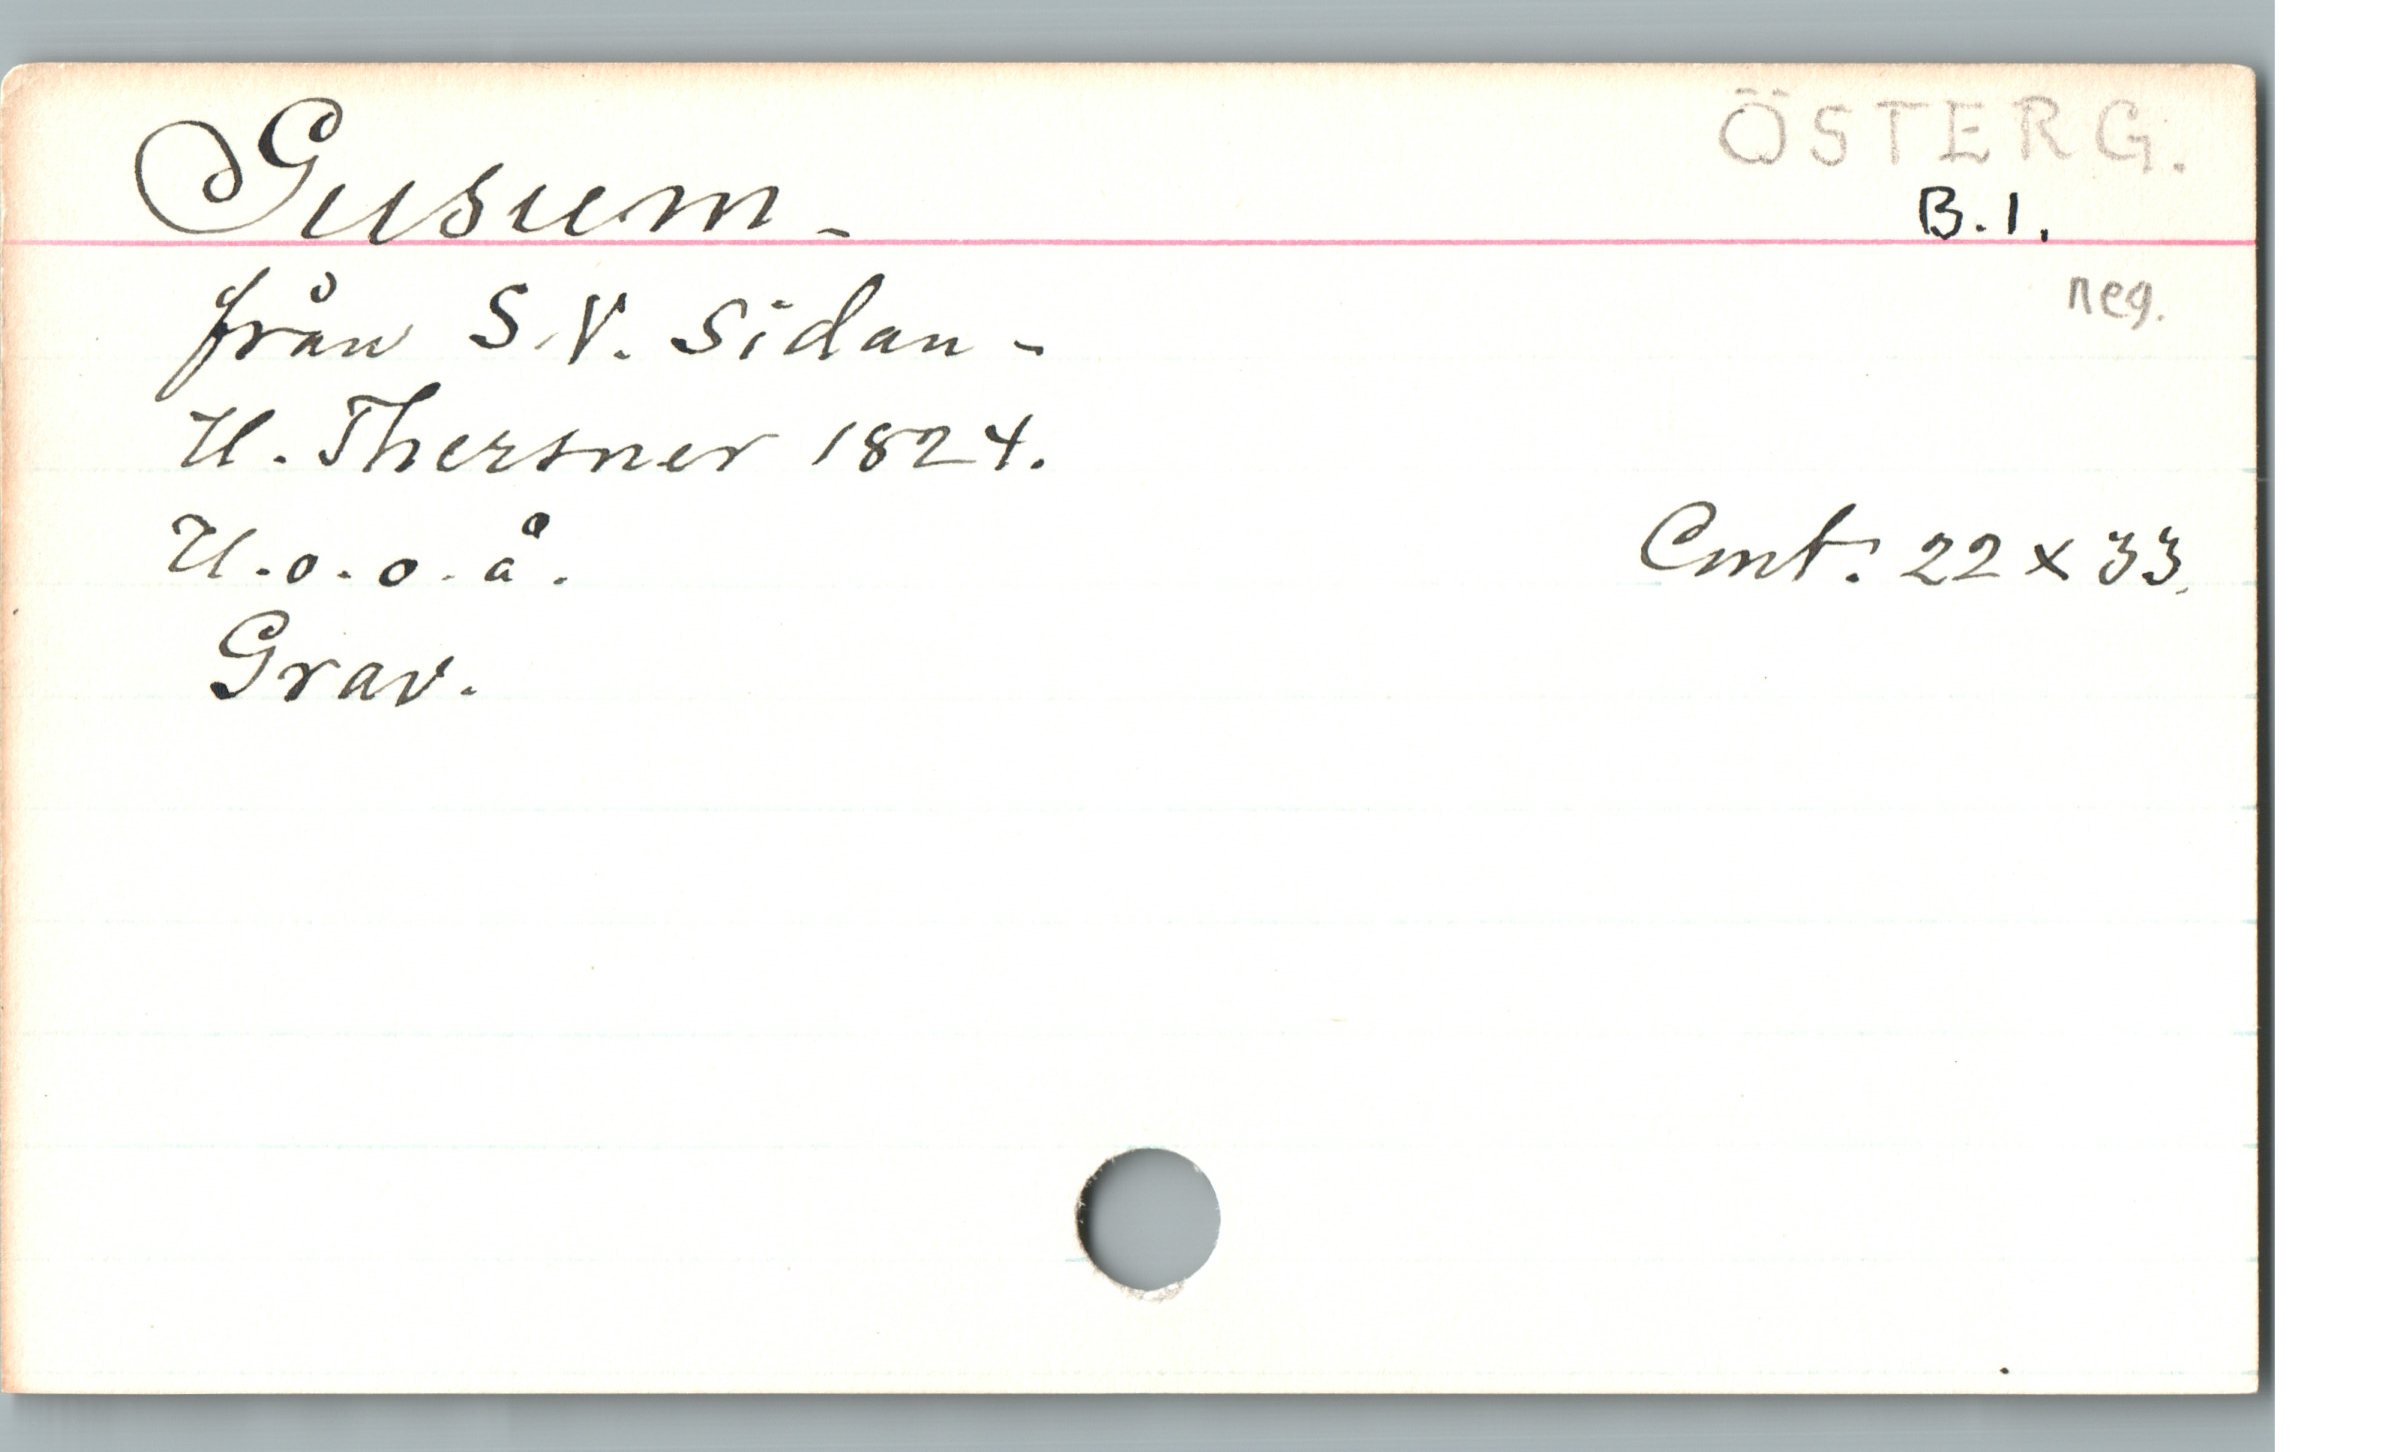 ÖSTERG.
Gusum -
B.1.
från S.V. Sidan -
neg.
U. Thersner 1824.
U.o.o.å.
Cmt. 22 x 33.
Grav.